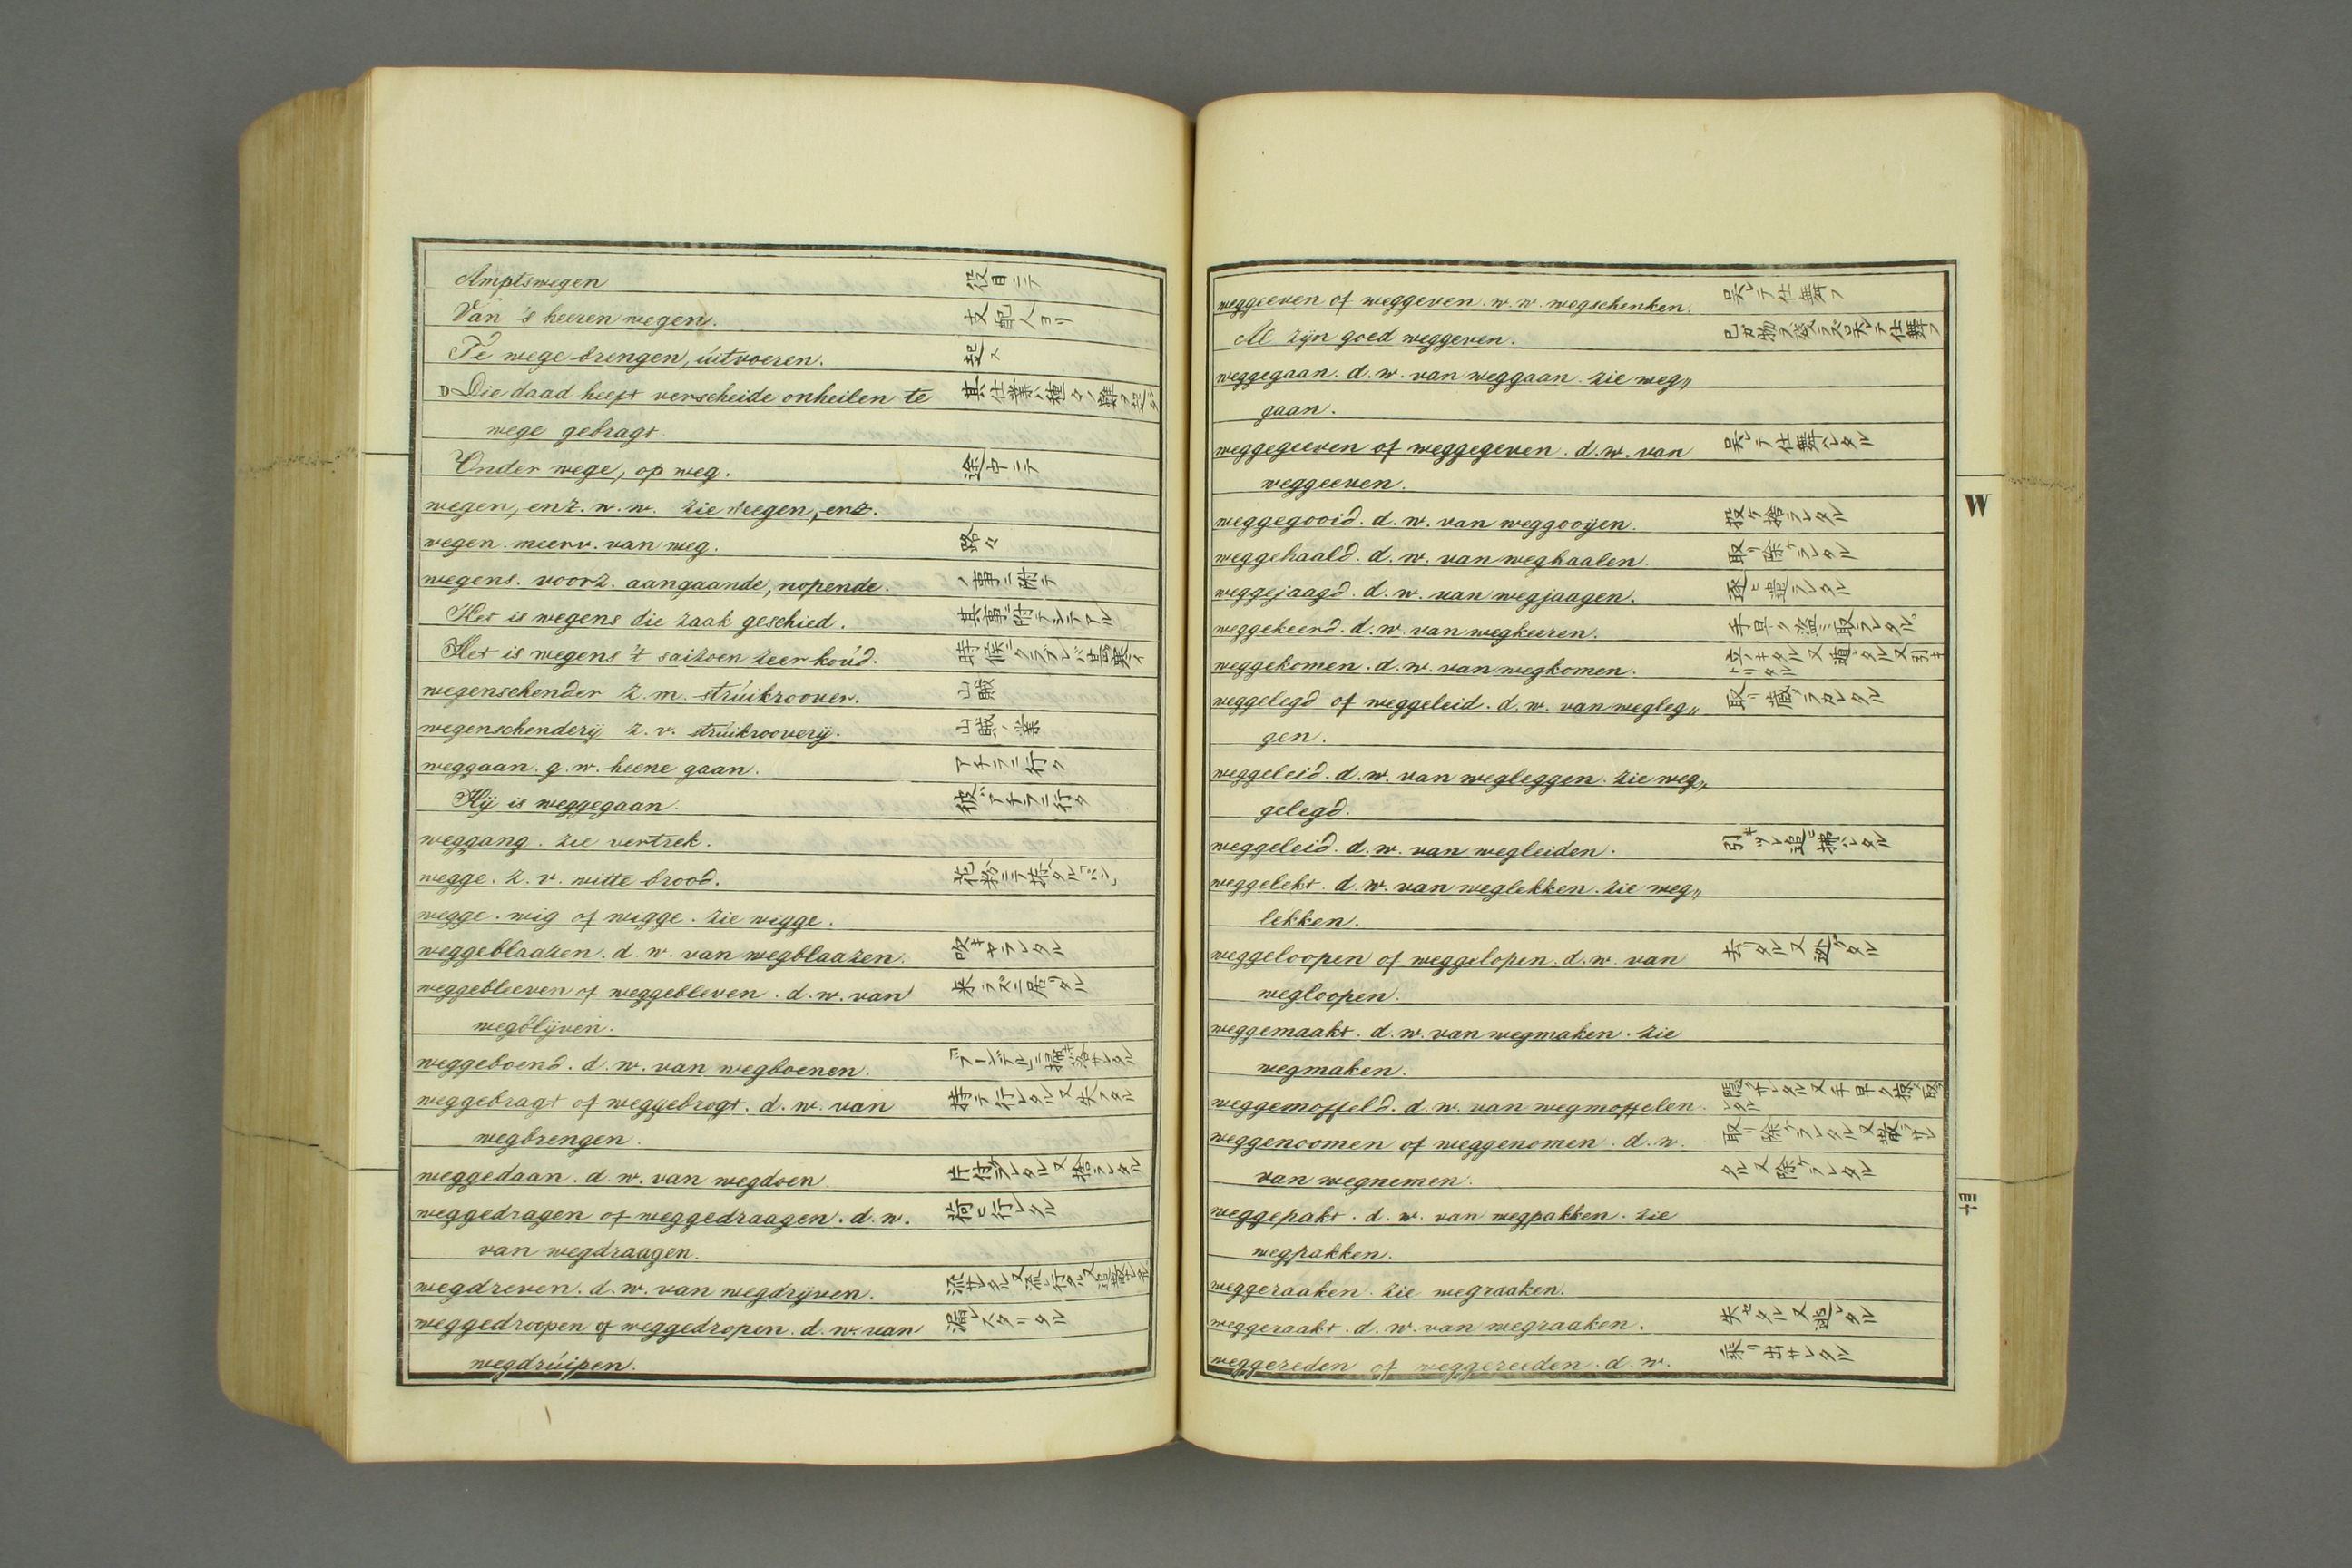 Amptswegen 役目ニテ
Van 's heeren wegen. 支配人ヨリ
Te wege brengen, úitvoeren. 起ス
Die daad heeft verscheide onheilen te 其仕業ハ種々ノ難ヲ起シタ
wege gebragt.
Onder wege, op weg. 途中ニテ
wegen, enz. w. w. zie weegen, enz.
wegen. meerv. van weg. 路々
wegens. voorz. aangaande, nopende. ノ事ニ附テ
Het is wegens die zaak geschied. 其事ニ附テ
Het is wegens 't saizoen zeer koúd. 時候ニクラブレバ甚寒イ
wegenschender z. m. strúikroover. 山賊
wegenschenderij z. v. strúikrooverij. 山賊ノ業
weggaan. g. w. heene gaan. アチラニ行ク
Hij is weggegaan. 彼ハアチラニ行タ
weggang. zie vertrek.
wegge. z. v. witte brood.
wegge. wig of wigge. zie wigge.
weggeblaazen. d. w. van wegblaazen. 吹キヤラレタル
weggebleeven of weggebleven. d. w. van 来ラズニ居リタル
wegblijven.
weggeboend. d. w. van wegboenen.
weggebragt of weggebrogt. d. w. van 持テ行レタル又失フタル
wegbrengen.
weggedaan. d. w. van wegdoen 片付ラレタル又捨ラレタル
weggedragen of weggedraagen. d. w. 荷ヒ行レタル
van wegdraagen.
wegdreven. d. w. van wegdrijven.
weggedroopen of weggedropen. d. w. van 漏レスタリタル
wegdrúipen.
weggeeven of weggeven. w. w. wegschenken. 呉レテ仕舞フ
Al zijn goed weggeven. 已カ物ヲ残ラズ呉レテ仕舞フ
weggegaan. d. w. van weggaan. zie weg〃
gaan.
weggegeeven of weggegeven. d. w. van 呉レテ仕舞ハレタル
weggeeven.
weggegooid. d. w. van weggooijen. 投ケ捨ラレタル
weggehaald. d. w. van weghaalen. 取リ除ケラレタル
weggejaagd. d. w. van wegjaagen. 逐ヒ遣ラレタル
weggekeerd. d. w. van wegkeeren. 手早ク盗ミ取ラレタル
weggekomen. d. w. van wegkomen. 立ノキタル又遁ゲタル又引キトリタル
weggelegd of weggeleid. d. w. van wegleg〃 取リ蔵ラレタル
gen.
weggeleid. d. w. van wegleggen. zie weg〃
gelegd.
weggeleid. d. w. van wegleiden. 引キツレ追ヒ拂ハレタル
weggelekt. d. w. van weglekken. zie weg〃
lekken.
weggeloopen of weggelopen. d. w. van 去リタル又逃ゲタル
wegloopen.
weggemaakt. d. w. van wegmaken. zie
wegmaken.
weggemoffeld. d. w. van wegmoffelen. 隠サレタル又手早ク掠メ取レタル
weggenoomen of weggenomen. d. w. 取リ除ケラレタル又散ラサレ
van wegnemen. タル又除ケラレタル
weggepakt. d. w. van wegpakken. zie
wegpakken.
weggeraaken. zie wegraaken.
weggeraakt. d. w. van wegraaken. 失セタル又逃レタル
weggereden of weggereeden. d. w. 乘リ出サレタル
W